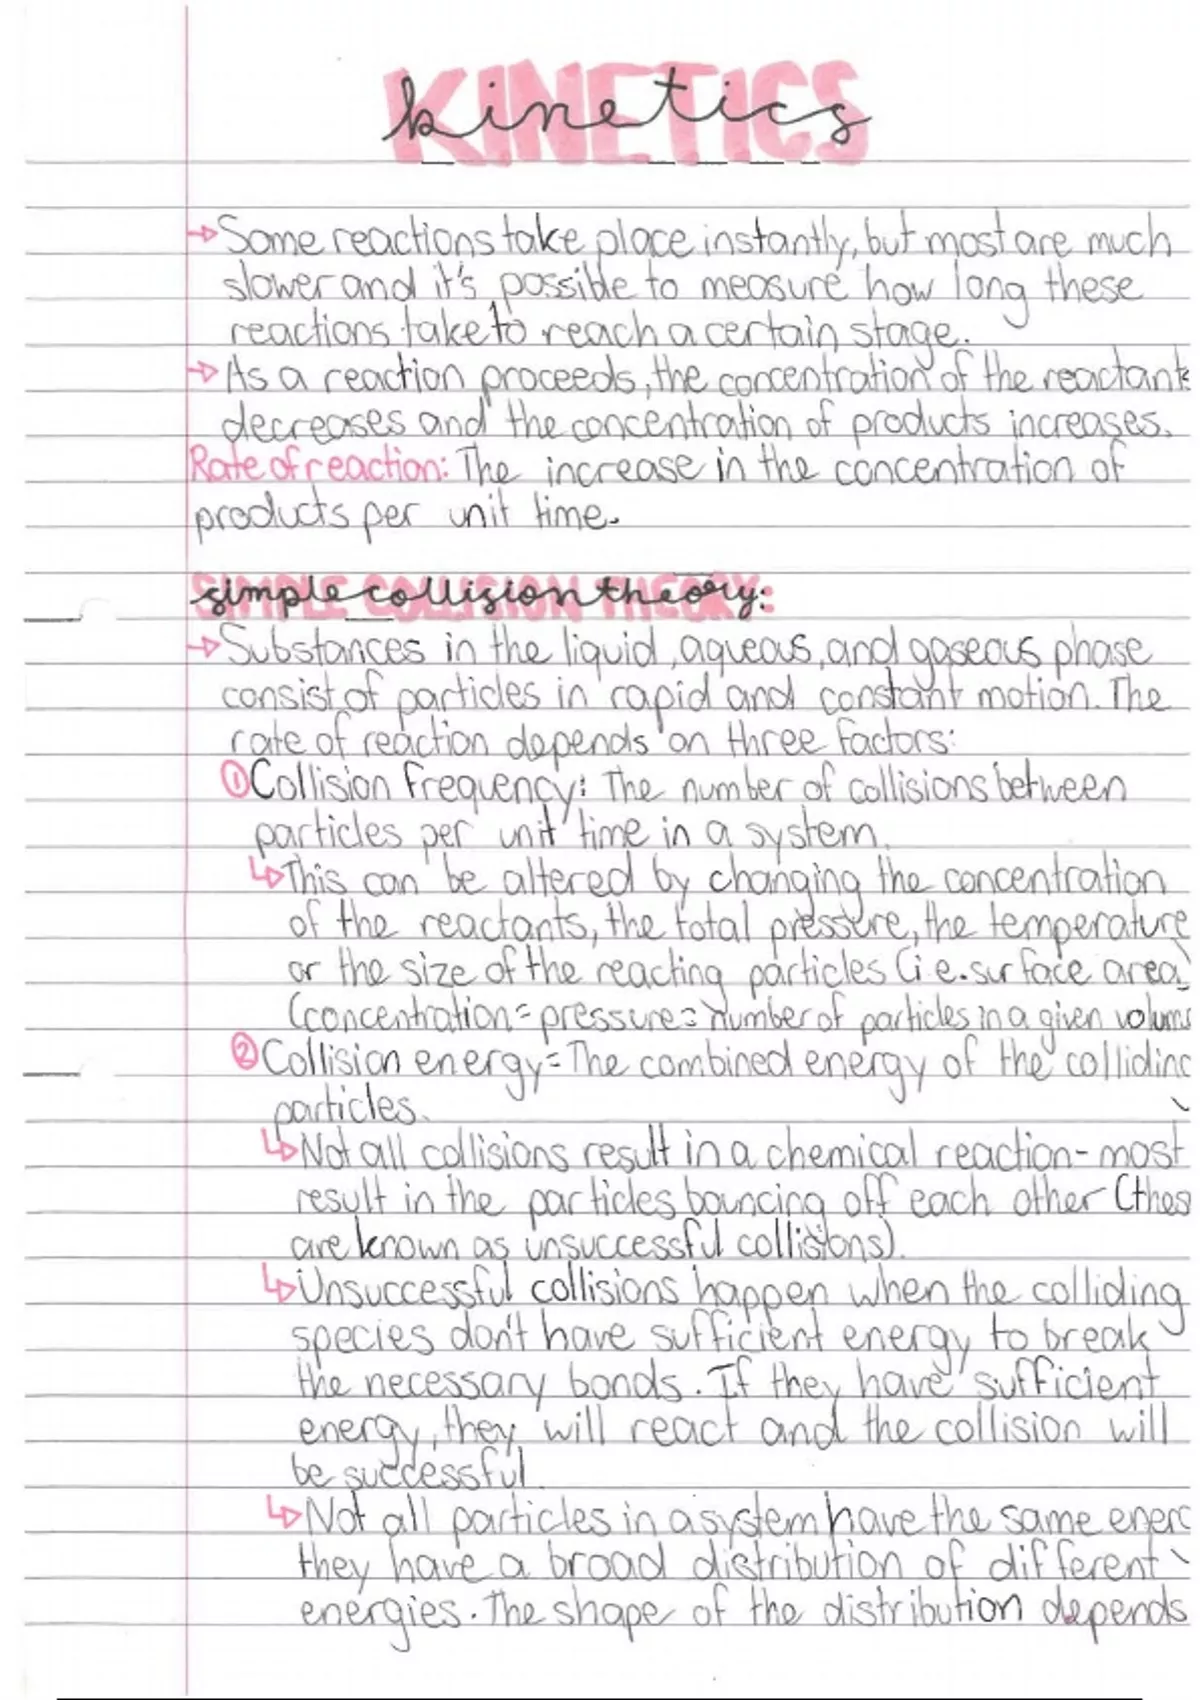 KINETICS
kinetics
→Some reactions take place instantly, but most are much
slower and it's possible to measure how long these
reactions take to reach a certain stage.
→As a reaction proceeds, the concentration of the reactants
decreases and the concentration of products increases.
Rate of reaction: The increase in the concentration of
products per unit time.
SIMPLE COLLISION THEORY
simple collision theory:
→Substances in the liquid, aqueous, and gaseous phase
consist of particles in rapid and constant motion. The
rate of reaction depends on three factors:
①Collision frequency: The number of collisions between
particles per unit time in a system.
↳This can be altered by changing the concentration
of the reactants, the total pressure, the temperature
or the size of the reacting particles (i.e. surface area)
(concentration = pressure = number of particles in a given volum
②Collision energy = The combined energy of the colliding
particles.
↳Not all collisions result in a chemical reaction - most
result in the particles bouncing off each other (thes
are known as unsuccessful collisions).
↳Unsuccessful collisions happen when the colliding
species don't have sufficient energy to break
the necessary bonds. If they have sufficient
energy, they will react and the collision will
be successful.
↳Not all particles in a system have the same energ
they have a broad distribution of different
energies. The shape of the distribution depends